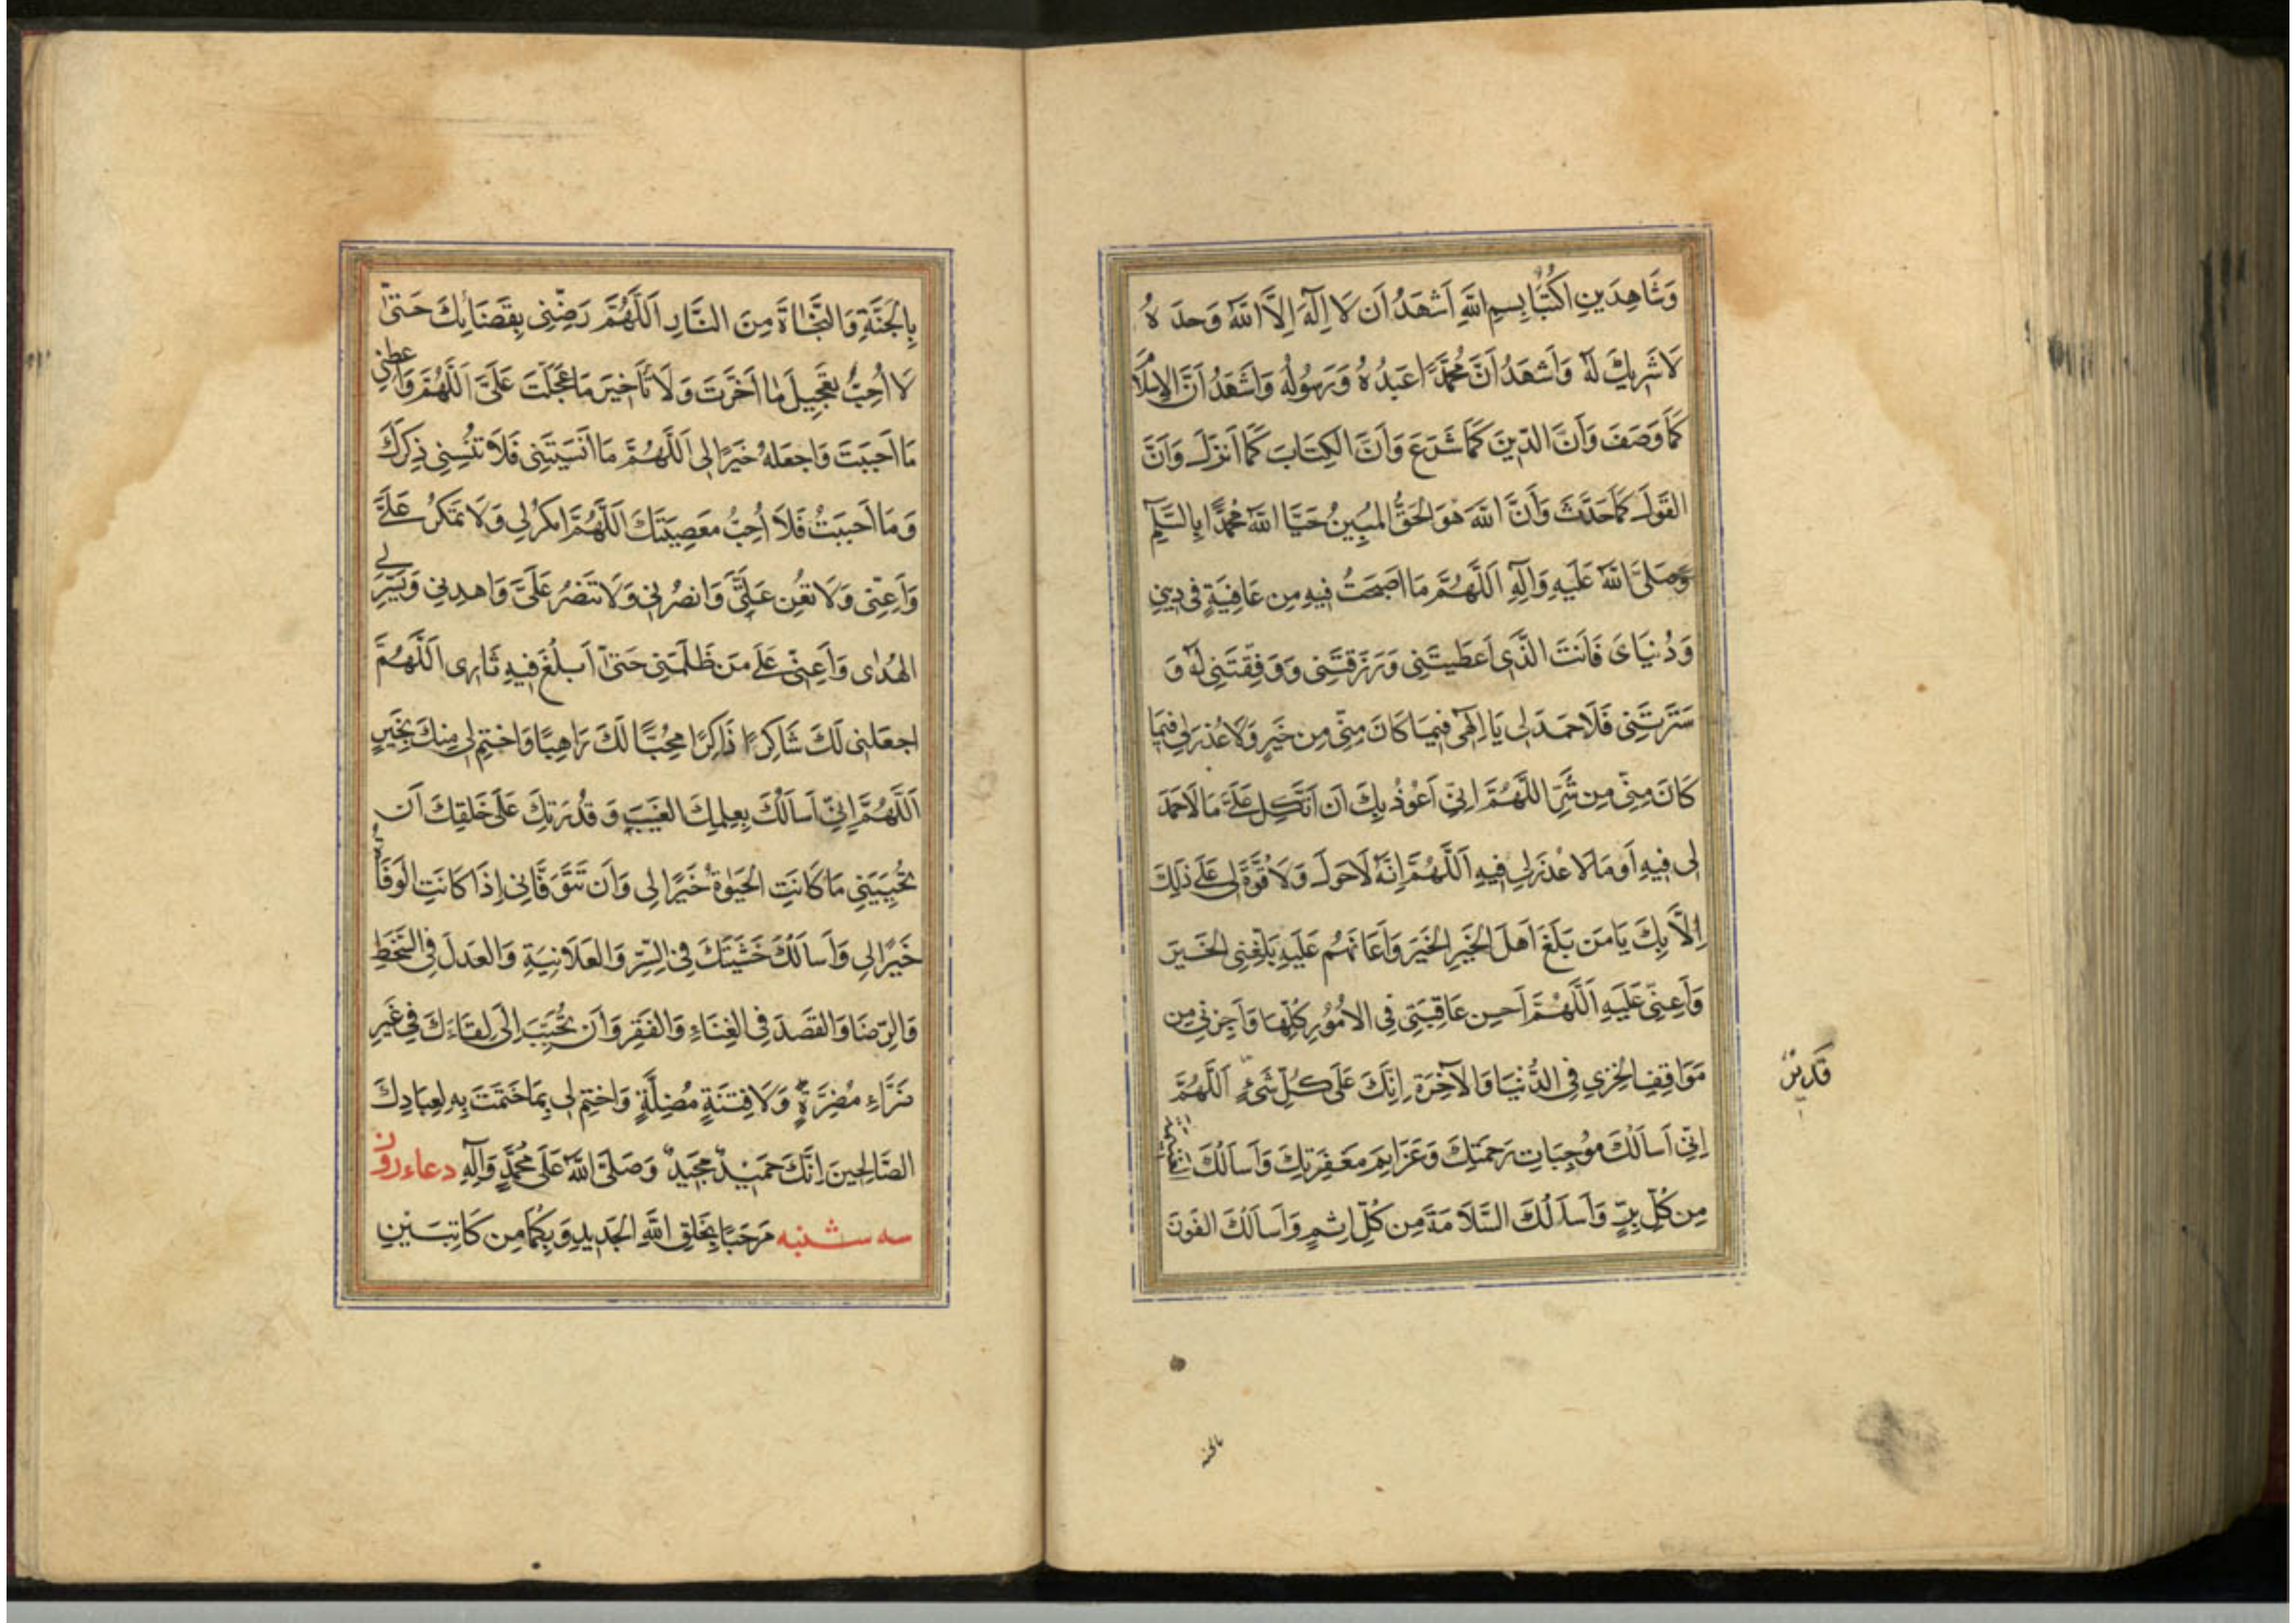 وَشَاهِدَيْنِ اُكْتُبَا بِسْمِ اللَّهِ اَشْهَدُ اَنْ لَا اِلٰهَ اِلَّا اللَّهُ وَحْدَهُ
لَا شَرِيكَ لَهُ وَاَشْهَدُ اَنَّ مُحَمَّدًا عَبْدُهُ وَرَسُولُهُ وَاَشْهَدُ اَنَّ الْاِسْلَامَ
كَمَا وَصَفَ وَاَنَّ الدِّينَ كَمَا شَرَعَ وَاَنَّ الْكِتَابَ كَمَا اَنْزَلَ وَاَنَّ
الْقَوْلَ كَمَا حَدَّثَ وَاَنَّ اللَّهَ هُوَ الْحَقُّ الْمُبِينُ حَيَّا اللَّهُ مُحَمَّدًا بِالسَّلَامِ
وَصَلَّى اللَّهُ عَلَيْهِ وَآلِهِ اَللَّهُمَّ مَا اَصْبَحْتُ فِيهِ مِنْ عَافِيَةٍ فِى دِينِى
وَدُنْيَاىَ فَاَنْتَ الَّذِى اَعْطَيْتَنِى وَرَزَقْتَنِى وَوَفَّقْتَنِى لَهُ وَ
سَتَرْتَنِى فَلَا حَمْدَ لِى يَا اِلٰهِى فِيمَا كَانَ مِنِّى مِنْ خَيْرٍ وَلَا عُذْرَ لِى فِيمَا
كَانَ مِنِّى مِنْ شَرٍّ اَللَّهُمَّ اِنِّى اَعُوذُ بِكَ اَنْ اَتَّكِلَ عَلَىٰ مَا لَا حَمْدَ
لِى فِيهِ اَوْ مَا لَا عُذْرَ لِى فِيهِ اَللَّهُمَّ اِنَّهُ لَا حَوْلَ وَلَا قُوَّةَ لِى عَلَىٰ ذٰلِكَ
اِلَّا بِكَ يَا مَنْ بَلَّغَ اَهْلَ الْخَيْرِ الْخَيْرَ وَاَعَانَهُمْ عَلَيْهِ بَلِّغْنِى الْخَيْرَ
وَاَعِنِّى عَلَيْهِ اَللَّهُمَّ اَحْسِنْ عَاقِبَتِى فِى الْاُمُورِ كُلِّهَا وَاَجِرْنِى مِنْ
مَوَاقِفِ الْخِزْىِ فِى الدُّنْيَا وَالْآخِرَةِ اِنَّكَ عَلَى كُلِّ شَىْءٍ اَللَّهُمَّ
قَدِيرٌ
اِنِّى اَسْاَلُكَ مُوجِبَاتِ رَحْمَتِكَ وَعَزَائِمَ مَغْفِرَتِكَ وَاَسْاَلُكَ الْغَنِيمَةَ
مِنْ كُلِّ بِرٍّ وَاَسْاَلُكَ السَّلَامَةَ مِنْ كُلِّ اِثْمٍ وَاَسْاَلُكَ الْفَوْزَ
بالجنة
بِالْجَنَّةِ وَالنَّجَاةَ مِنَ النَّارِ اَللَّهُمَّ رَضِّنِى بِقَضَائِكَ حَتَّى
لَا اُحِبَّ تَعْجِيلَ مَا اَخَّرْتَ وَلَا تَاْخِيرَ مَا عَجَّلْتَ عَلَىَّ اَللَّهُمَّ وَاَعْطِنِى
مَا اَحْبَبْتَ وَاجْعَلْهُ خَيْرًا لِى اَللَّهُمَّ مَا اَنْسَيْتَنِى فَلَا تُنْسِنِى ذِكْرَكَ
وَمَا اَحْبَبْتُ فَلَا اُحِبُّ مَعْصِيَتَكَ اَللَّهُمَّ امْكُرْ لِى وَلَا تَمْكُرْ عَلَىَّ
وَاَعِنِّى وَلَا تُعِنْ عَلَىَّ وَانْصُرْنِى وَلَا تَنْصُرْ عَلَىَّ وَاهْدِنِى وَيَسِّرْ لِى
الْهُدٰى وَاَعِنِّى عَلَى مَنْ ظَلَمَنِى حَتَّى اَبْلُغَ فِيهِ ثَارِى اَللَّهُمَّ
اجْعَلْنِى لَكَ شَاكِرًا ذَاكِرًا مُحِبًّا لَكَ رَاهِبًا وَاخْتِمْ لِى مِنْكَ بِخَيْرٍ
اَللَّهُمَّ اِنِّى اَسْاَلُكَ بِعِلْمِكَ الْغَيْبَ وَقُدْرَتِكَ عَلَى خَلْقِكَ اَنْ
تُحْيِيَنِى مَا كَانَتِ الْحَيٰوةُ خَيْرًا لِى وَاَنْ تَتَوَفَّانِى اِذَا كَانَتِ الْوَفَاةُ
خَيْرًا لِى وَاَسْاَلُكَ خَشْيَتَكَ فِى السِّرِّ وَالْعَلَانِيَةِ وَالْعَدْلَ فِى السَّخَطِ
وَالرِّضَا وَالْقَصْدَ فِى الْغِنَاءِ وَالْفَقْرِ وَاَنْ تُحَبِّبَ اِلَىَّ لِقَاءَكَ فِى غَيْرِ
ضَرَّاءِ مُضِرَّةٍ وَلَا فِتْنَةٍ مُضِلَّةٍ وَاخْتِمْ لِى بِمَا خَتَمْتَ بِهِ لِعِبَادِكَ
الصَّالِحِينَ اِنَّكَ حَمِيدٌ مَجِيدٌ وَصَلَّى اللَّهُ عَلَى مُحَمَّدٍ وَآلِهِ دعاء روز
سه شنبه مَرْحَبًا بِخَلْقِ اللَّهِ الْجَدِيدِ وَبِكُمَا مِنْ كَاتِبَيْنِ